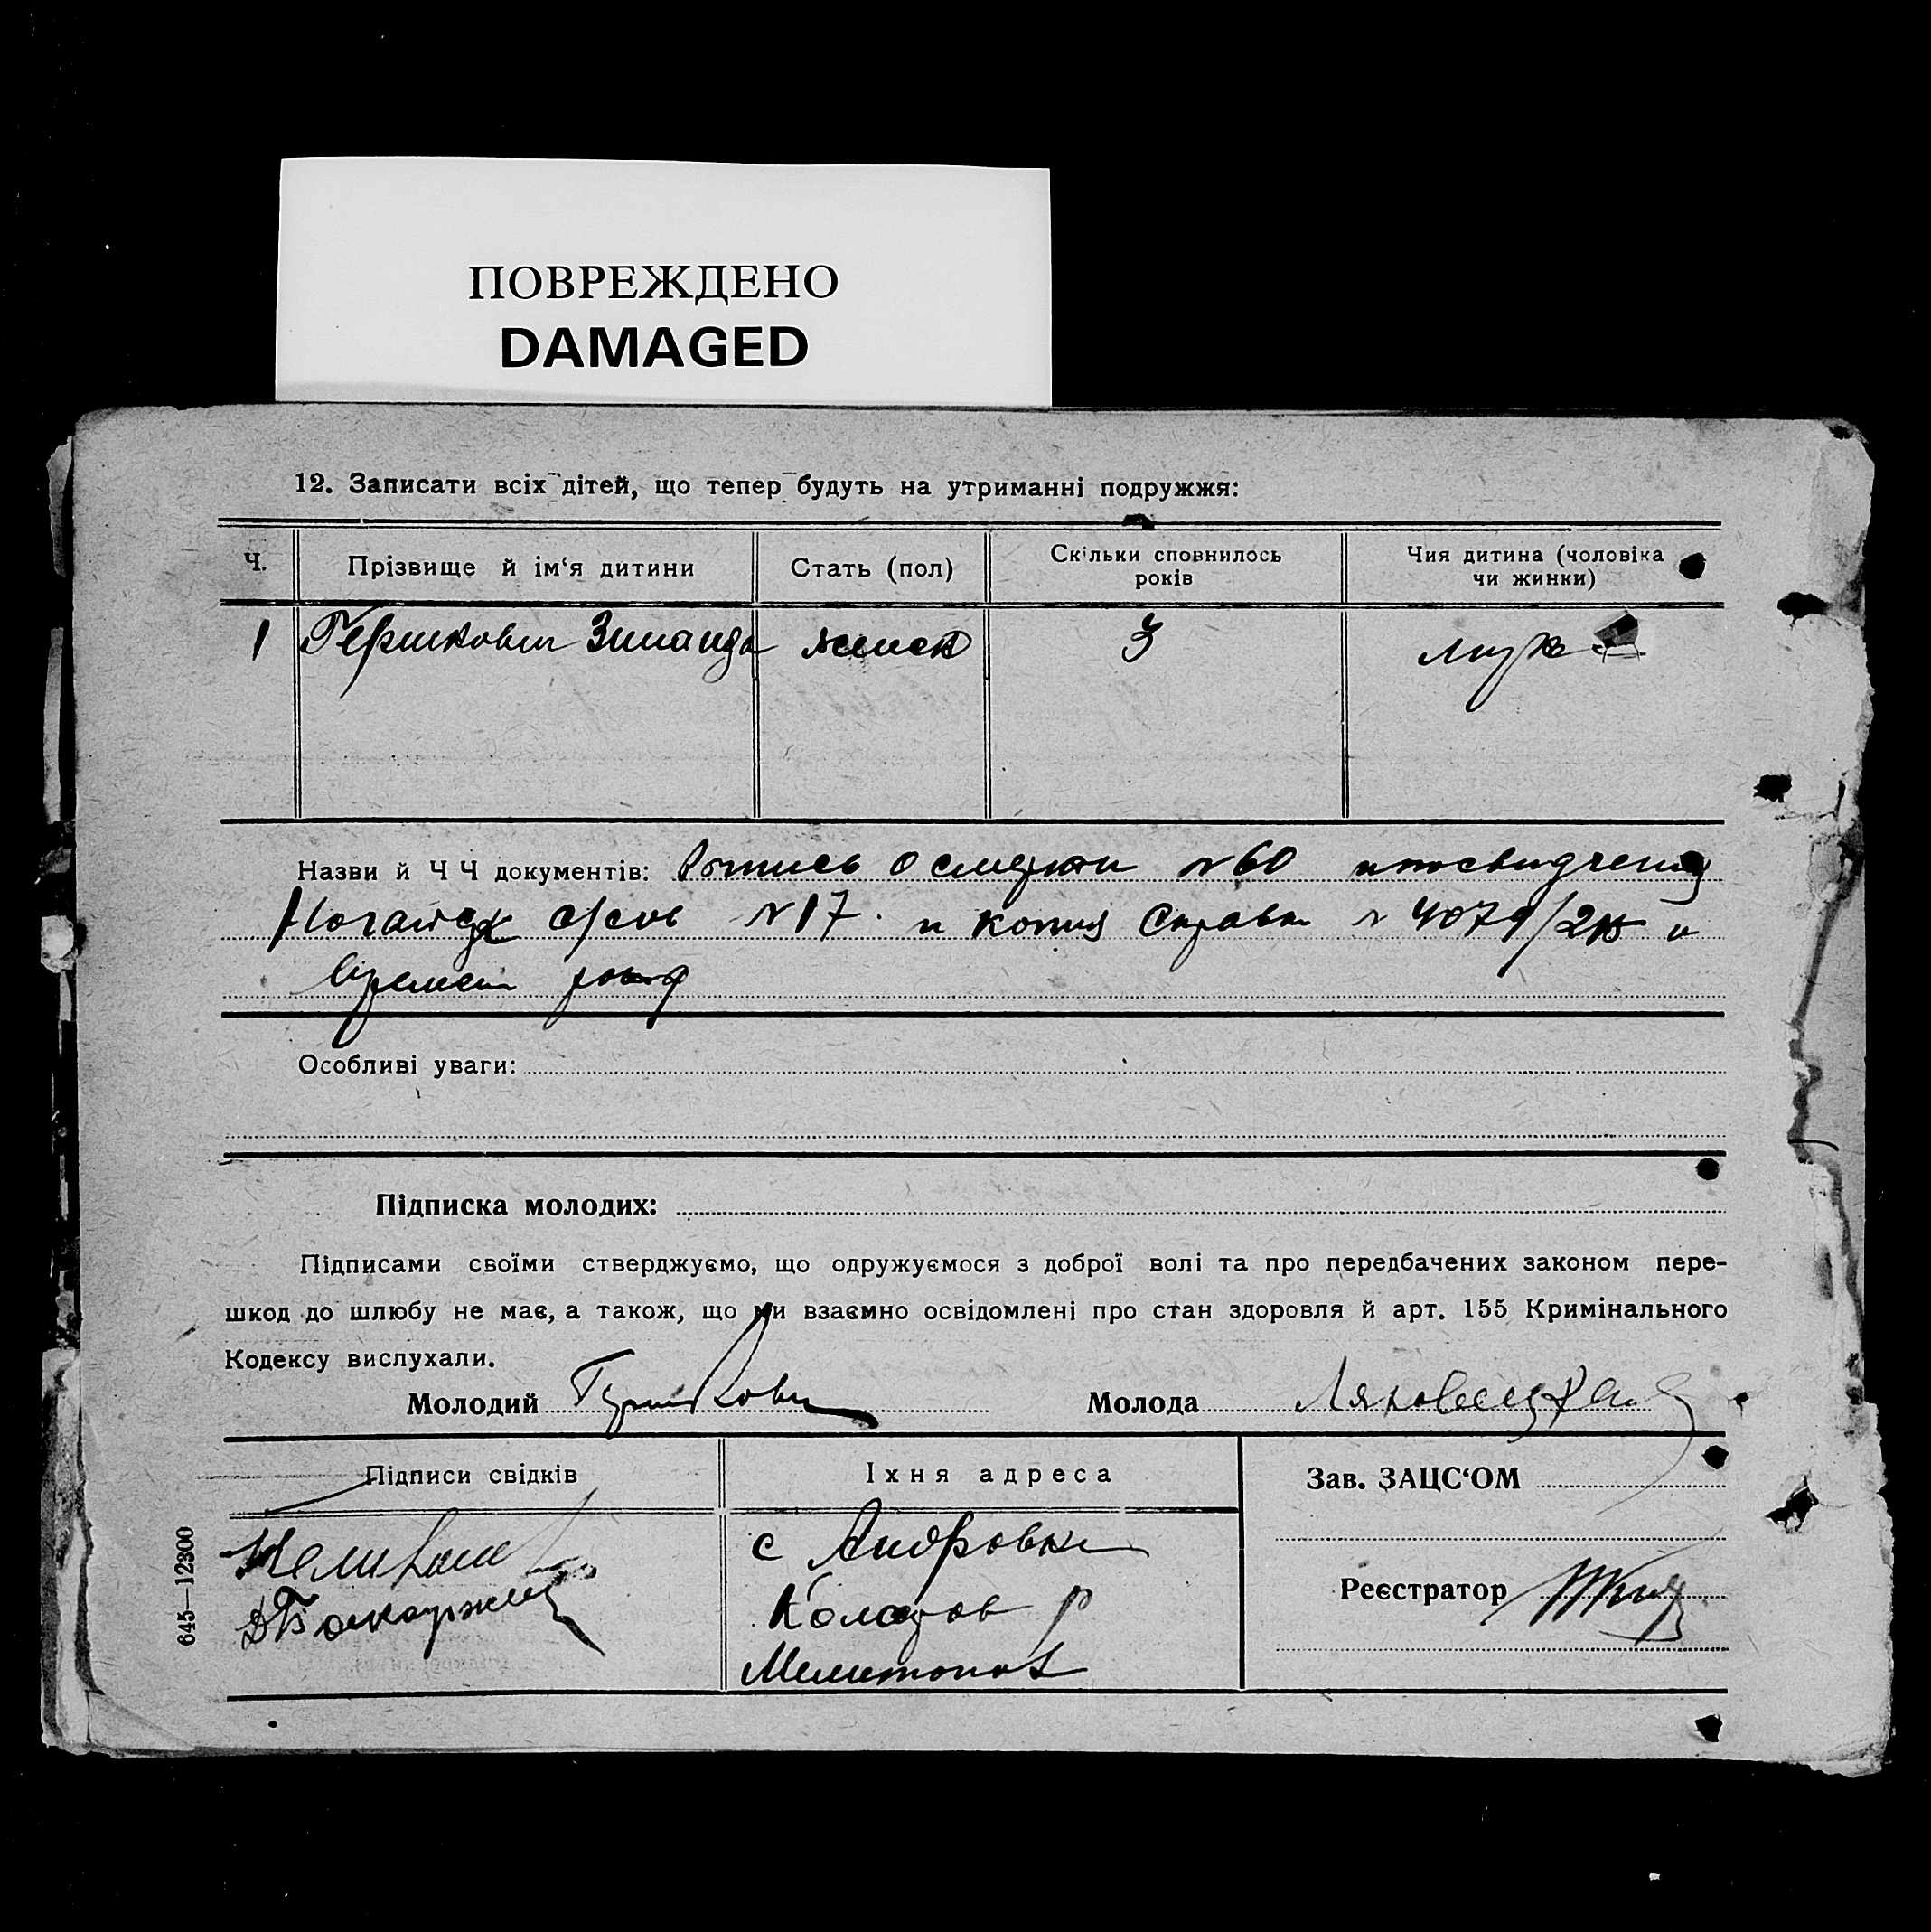 ПОВРЕЖДЕНО
DAMAGED
12. Записати всіх дітей, що тепер будуть на утриманні подружжя:
Ч. Прізвище й ім‘я дитини Стать (пол) Скільки сповнилось років Чия дитина (чоловіка чи жинки)
1 Гершкович Зинаида женск 3 мужа
Назви й Ч Ч документів: о смерти №60
с/сов №17. и копия Справки № 4079/2 и
Особливі уваги:
Підписка молодих:
Підписами своїми стверджуємо, що одружуємося з доброї волі та про передбачених законом пере-
шкод до шлюбу не має, а також, що ми взаємно освідомлені про стан здоровля й арт. 155 Кримінального
Кодексу вислухали.
Молодий Гершкович Молода Ляховецкая
Підписи свідків Їхня адреса Зав. ЗАЦС‘ОМ
с Андровка
Реєстратор
Мелитопол
645—12300